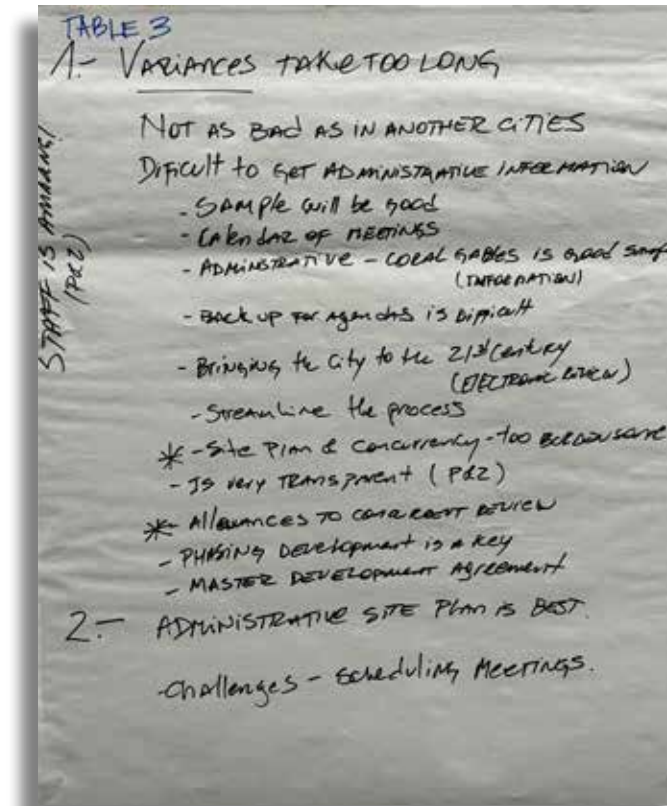 TABLE 3
1.- VARIANCES TAKE TOO LONG
NOT AS BAD AS IN ANOTHER CITIES
Dificult to GET ADMINISTRATIVE INFORMATION
- SAMPLE will be good
- CALENDAR OF MEETINGS
- ADMINISTRATIVE - CORAL GABLES is good
(INFORMATION)
- BACK UP FOR AGENDAS is Difficult
- Bringing the City to the 21st Century
(ELECTRONIC REVIEW)
- Streamline the process
* - Site Plan & Concurrency - too BURDENSOME
- Is very TRANSPARENT (P&Z)
* - Allowances TO CONCURRENT REVIEW
- PHASING Development is a Key
- MASTER DEVELOPMENT Agreement
2.- ADMINISTRATIVE SITE Plan is BEST.
- Challenges - Scheduling MEETINGS.
STAFF IS AMAZING!
(P&Z)